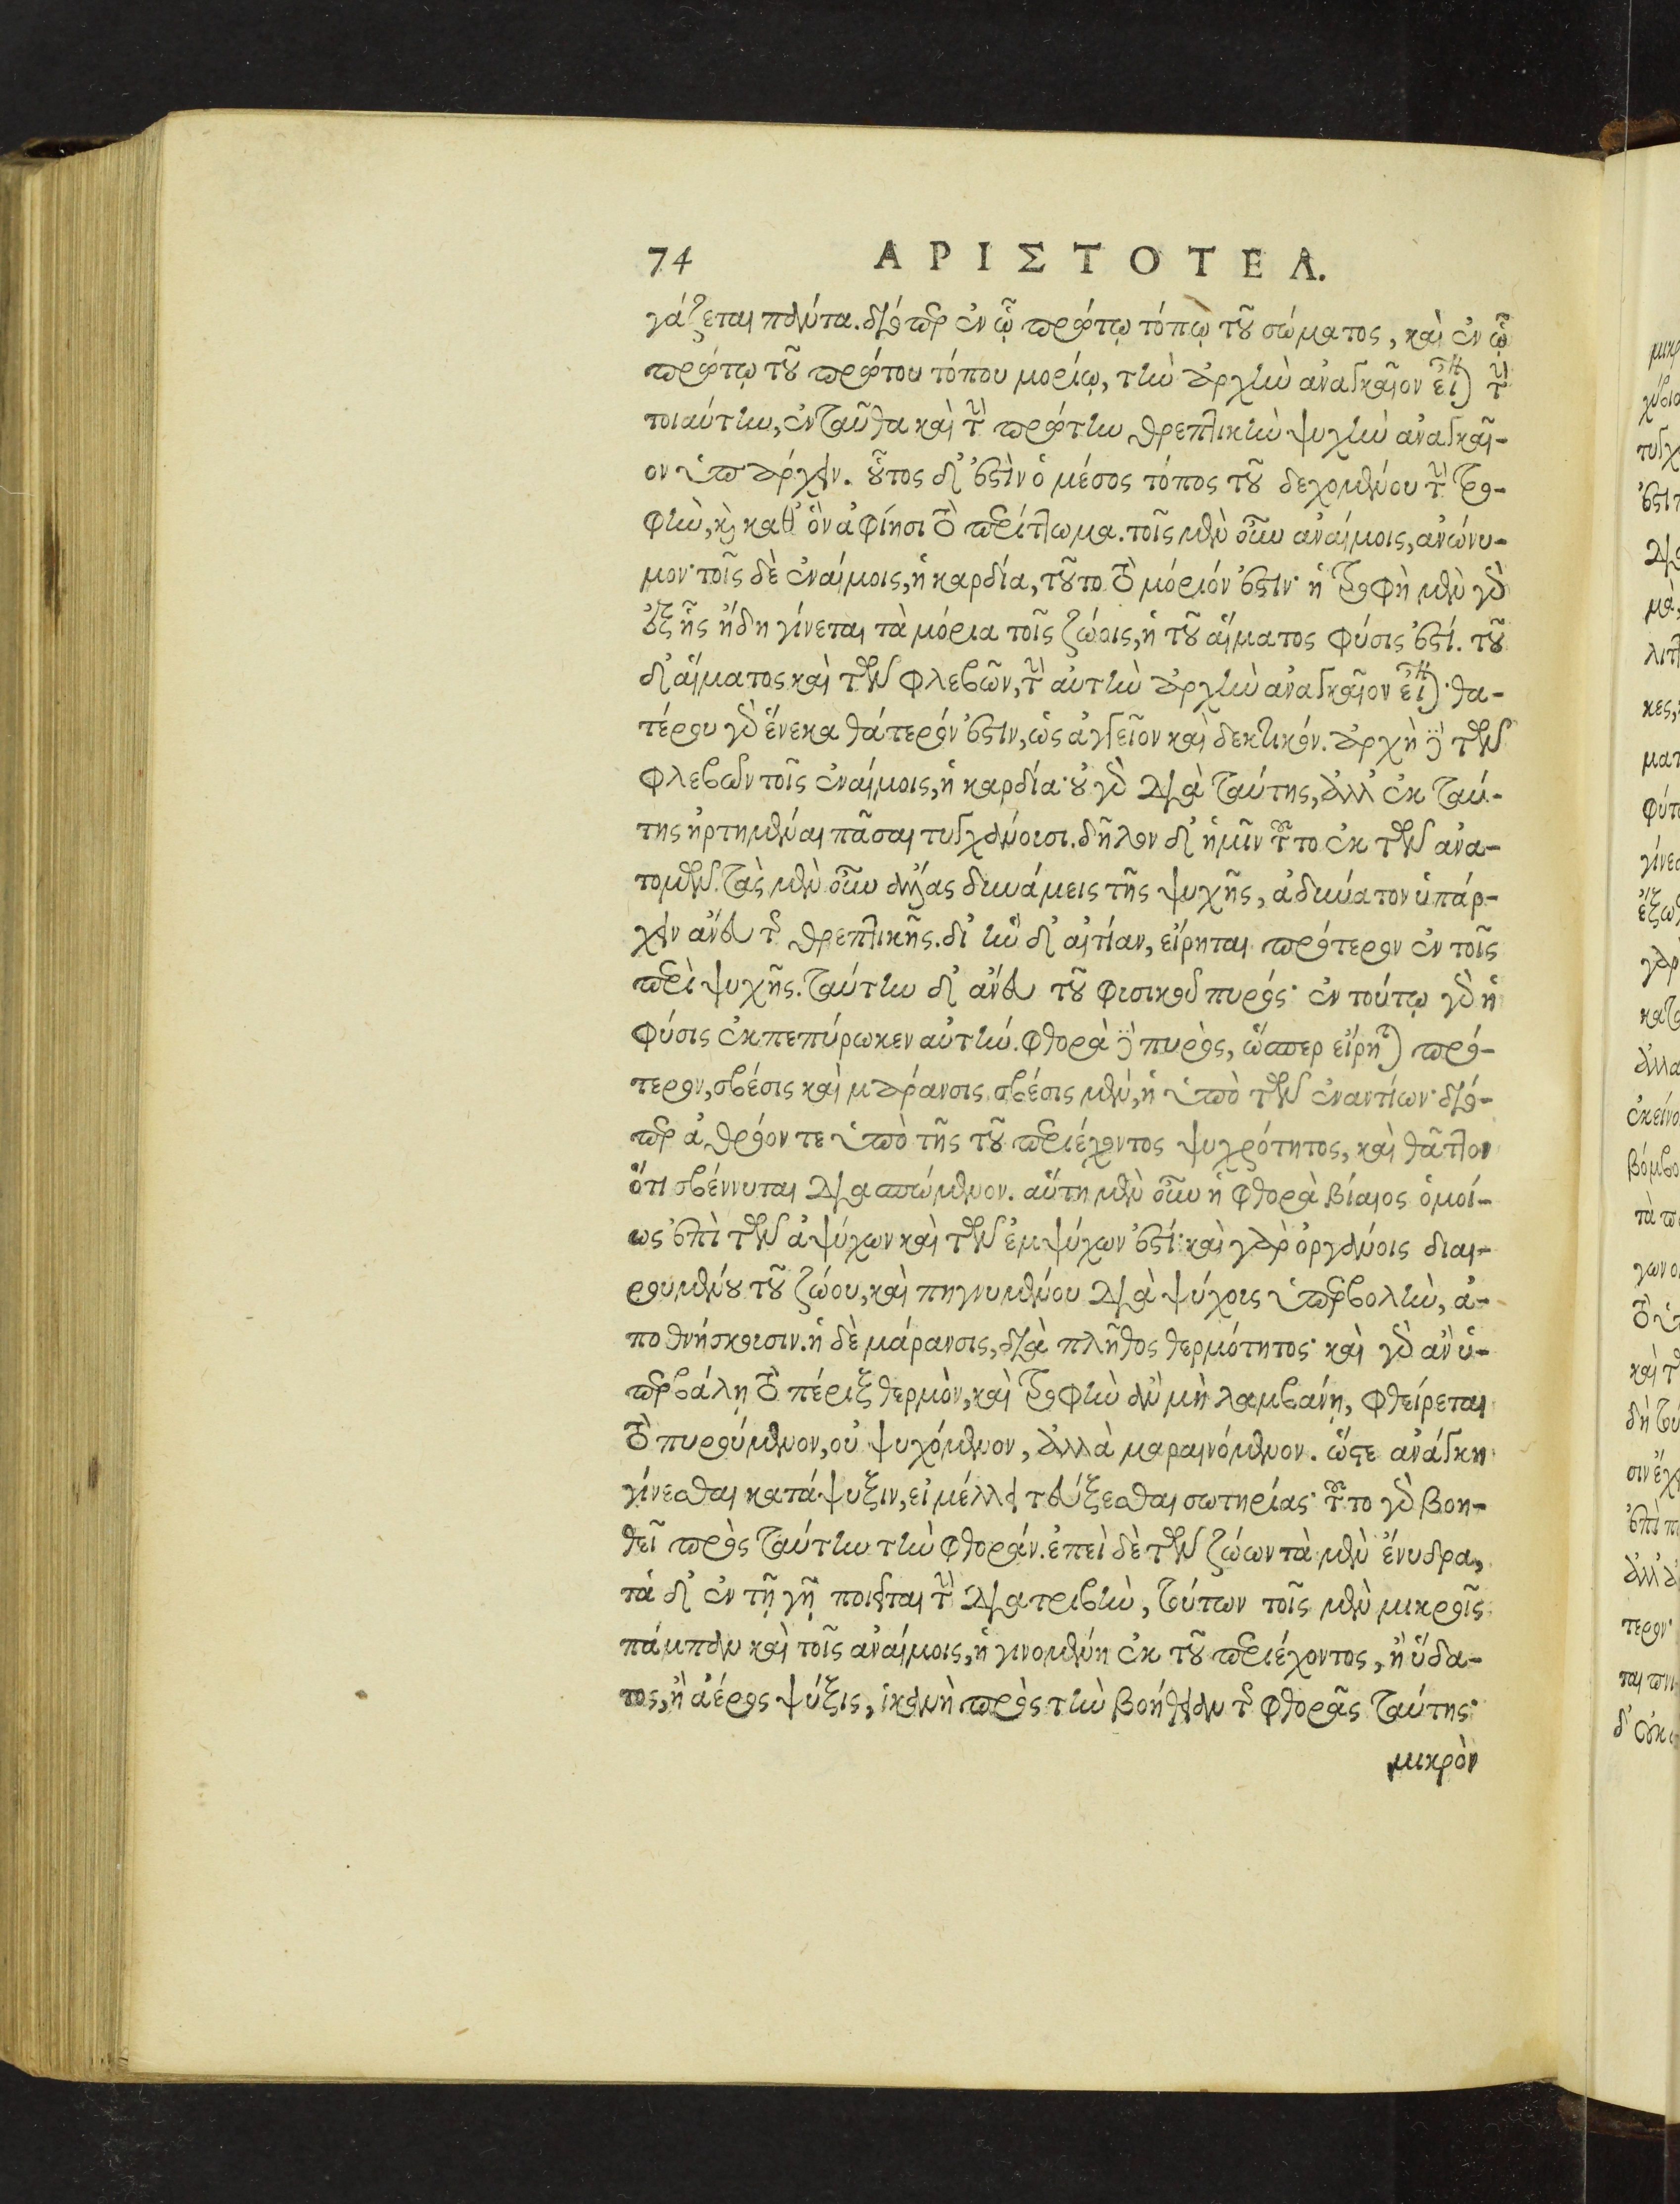 74 ΑΡΙΣΤΟΤΕΛ.
γάζεται πάντα. διόπερ ἐν ᾧ πρώτῳ τόπῳ τοῦ σώματος, καὶ ἐν ᾧ
πρώτῳ τοῦ πρώτου τόπου μορίῳ, τὴν ἀρχὴν ἀναγκαῖον εἶναι τὴν
τοιαύτην, ἐνταῦθα καὶ τὴν πρώτην θρεπτικὴν ψυχὴν ἀναγκαῖ-
ον ὑπάρχειν. οὗτος δ' ἐστὶν ὁ μέσος τόπος τοῦ δεχομένου τὴν τρο-
φὴν, καὶ καθ' ὃν ἀφίησι τὸ περίττωμα. τοῖς μὲν οὖν ἀναίμοις, ἀνώνυ-
μον· τοῖς δὲ ἐναίμοις, ἡ καρδία, τοῦτο τὸ μόριόν ἐστιν· ἡ τροφὴ μὲν γὰρ
ἐξ ἧς ἤδη γίνεται τὰ μόρια τοῖς ζώοις, ἡ τοῦ αἵματος φύσις ἐστί. τοῦ
δ' αἵματος καὶ τῶν φλεβῶν, τὴν αὐτὴν ἀρχὴν ἀναγκαῖον εἶναι· θα-
τέρου γὰρ ἕνεκα θάτερόν ἐστιν, ὡς ἀγγεῖον καὶ δεκτικόν. ἀρχὴ δὲ τῶν
φλεβῶν τοῖς ἐναίμοις, ἡ καρδία· οὐ γὰρ διὰ ταύτης, ἀλλ' ἐκ ταύ-
της ἠρτημέναι πᾶσαι τυγχάνουσι. δῆλον δ' ἡμῖν τοῦτο ἐκ τῶν ἀνα-
τομῶν. τὰς μὲν οὖν ἄλλας δυνάμεις τῆς ψυχῆς, ἀδύνατον ὑπάρ-
χειν ἄνευ τῆς θρεπτικῆς. δι' ἣν δ' αἰτίαν, εἴρηται πρότερον ἐν τοῖς
περὶ ψυχῆς. ταύτην δ' ἄνευ τοῦ φυσικοῦ πυρός· ἐν τούτῳ γὰρ ἡ
φύσις ἐκπεπύρωκεν αὐτήν. φθορὰ δὲ πυρὸς, ὥσπερ εἴρηται πρό-
τερον, σβέσις καὶ μάρανσις. σβέσις μὲν, ἡ ὑπὸ τῶν ἐναντίων· διό-
περ ἀθρόον τε ὑπὸ τῆς τοῦ περιέχοντος ψυχρότητος, καὶ θᾶττον
ὅτι σβέννυται διασπώμενον. αὕτη μὲν οὖν ἡ φθορὰ βίαιος ὁμοί-
ως ἐπὶ τῶν ἀψύχων καὶ τῶν ἐμψύχων ἐστί· καὶ γὰρ ὀργάνοις διαι-
ρουμένου τοῦ ζώου, καὶ πηγνυμένου διὰ ψύχους ὑπερβολὴν, ἀ-
ποθνήσκουσιν. ἡ δὲ μάρανσις, διὰ πλῆθος θερμότητος· καὶ γὰρ ἂν ὑ-
περβάλῃ τὸ πέριξ θερμὸν, καὶ τροφὴν ἂν μὴ λαμβανῃ, φθείρεται
τὸ πυρούμενον, οὐ ψυχόμενον, ἀλλὰ μαραινόμενον. ὥστε ἀνάγκη
γίνεσθαι κατάψυξιν, εἰ μέλλει τεύξεσθαι σωτηρίας· τοῦτο γὰρ βοη-
θεῖ πρὸς ταύτην τὴν φθοράν. ἐπεὶ δὲ τῶν ζώων τὰ μὲν ἔνυδρα,
τὰ δ' ἐν τῇ γῇ ποιεῖται τὴν διατριβὴν, τούτων τοῖς μὲν μικροῖς
πάμπαν καὶ τοῖς ἀναίμοις, ἡ γινομένη ἐκ τοῦ περιέχοντος, ἢ ὕδα-
τος, ἢ ἀέρος ψύξις, ἱκανὴ πρὸς τὴν βοήθειαν τῆς φθορᾶς ταύτης·
μικρὸν